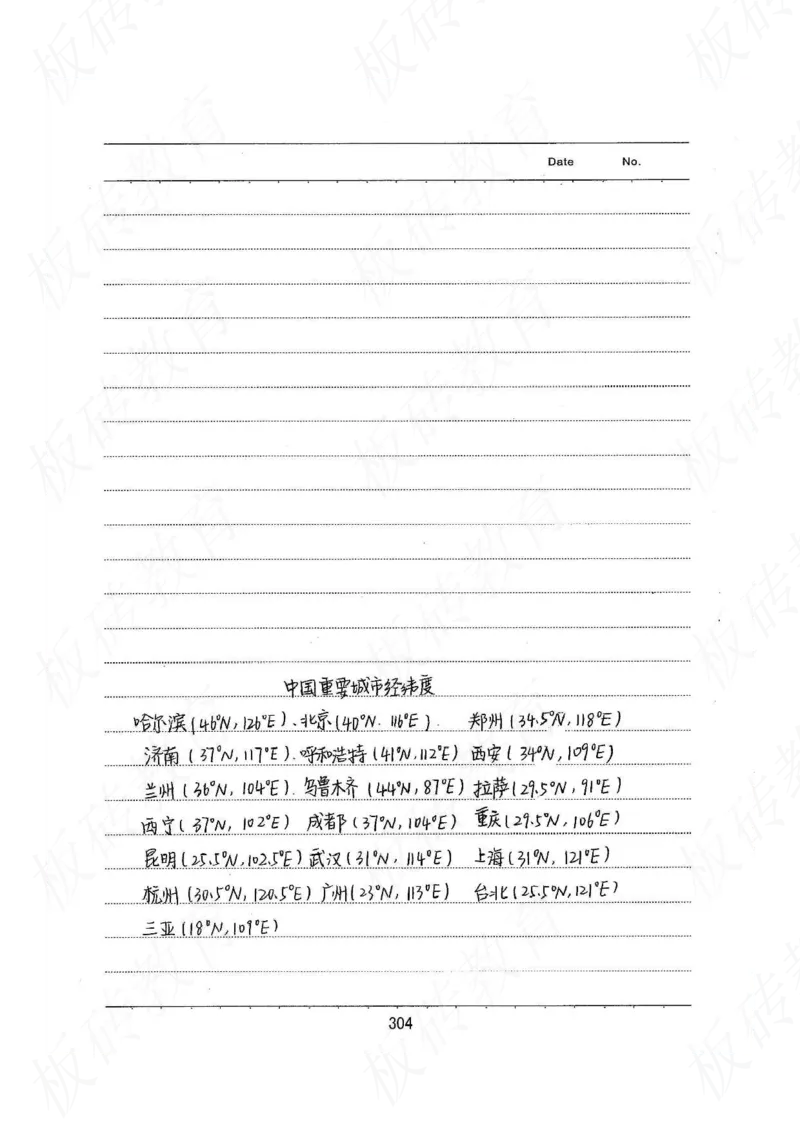 Date No.
中国重要城市经纬度
哈尔滨(46°N,126°E)、北京(40°N. 116°E). 郑州(34.5°N,118°E)
济南(37°N,117°E).呼和浩特(41°N,112°E) 西安(34°N,109°E)
兰州(36°N, 104°E). 乌鲁木齐(44°N,87°E) 拉萨(29.5°N,91°E)
西宁(37°N, 102°E) 成都(37°N,104°E) 重庆(29.5°N,106°E)
昆明(25.5°N,102.5°E) 武汉(31°N, 114°E) 上海(31°N, 121°E)
杭州(30.5°N, 120.5°E) 广州(23°N, 113°E) 台北(25.5°N,121°E)
三亚(18°N,109°E)
304
板砖教育